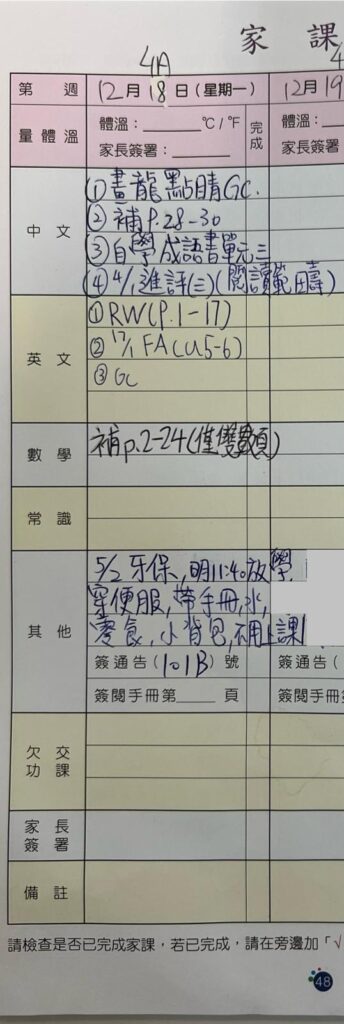 家 課
4A 4
第 週 12月18日(星期一) 12月19
量體溫 體溫:______℃/℉ 完成 體溫:
家長簽署:______ 家長簽
中文 ①畫龍點睛GC.
②補P.28-30
③自學成語書單元三
④4/1進評(三)(閱讀範疇)
英文 ①RW(P.1-17)
②17/1 FA(U5-6)
③GC
數學 補p.2-24(僅雙數頁)
常識
其他 5/2牙保,明11:40放學.
穿便服,帶手冊,水,
零食,小背包,不用上課
簽通告(101B)號 簽通告(
簽閱手冊第____頁 簽閱手冊
欠交功課
家長簽署
備註
請檢查是否已完成家課,若已完成,請在旁邊加「√
48